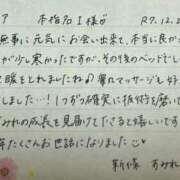 ア 本指名I様が R7.12.2
無事に元気にお会い出来て、本当に良か
が少し寒かったですが、その後のベッドでし
暖をとれましたね♪ マッサージも好
した…！1つずつ確実に施術を磨い
みれの成長を見届けて下さると嬉しいです
年たくさんお世話になりました♡
新條 すみれ